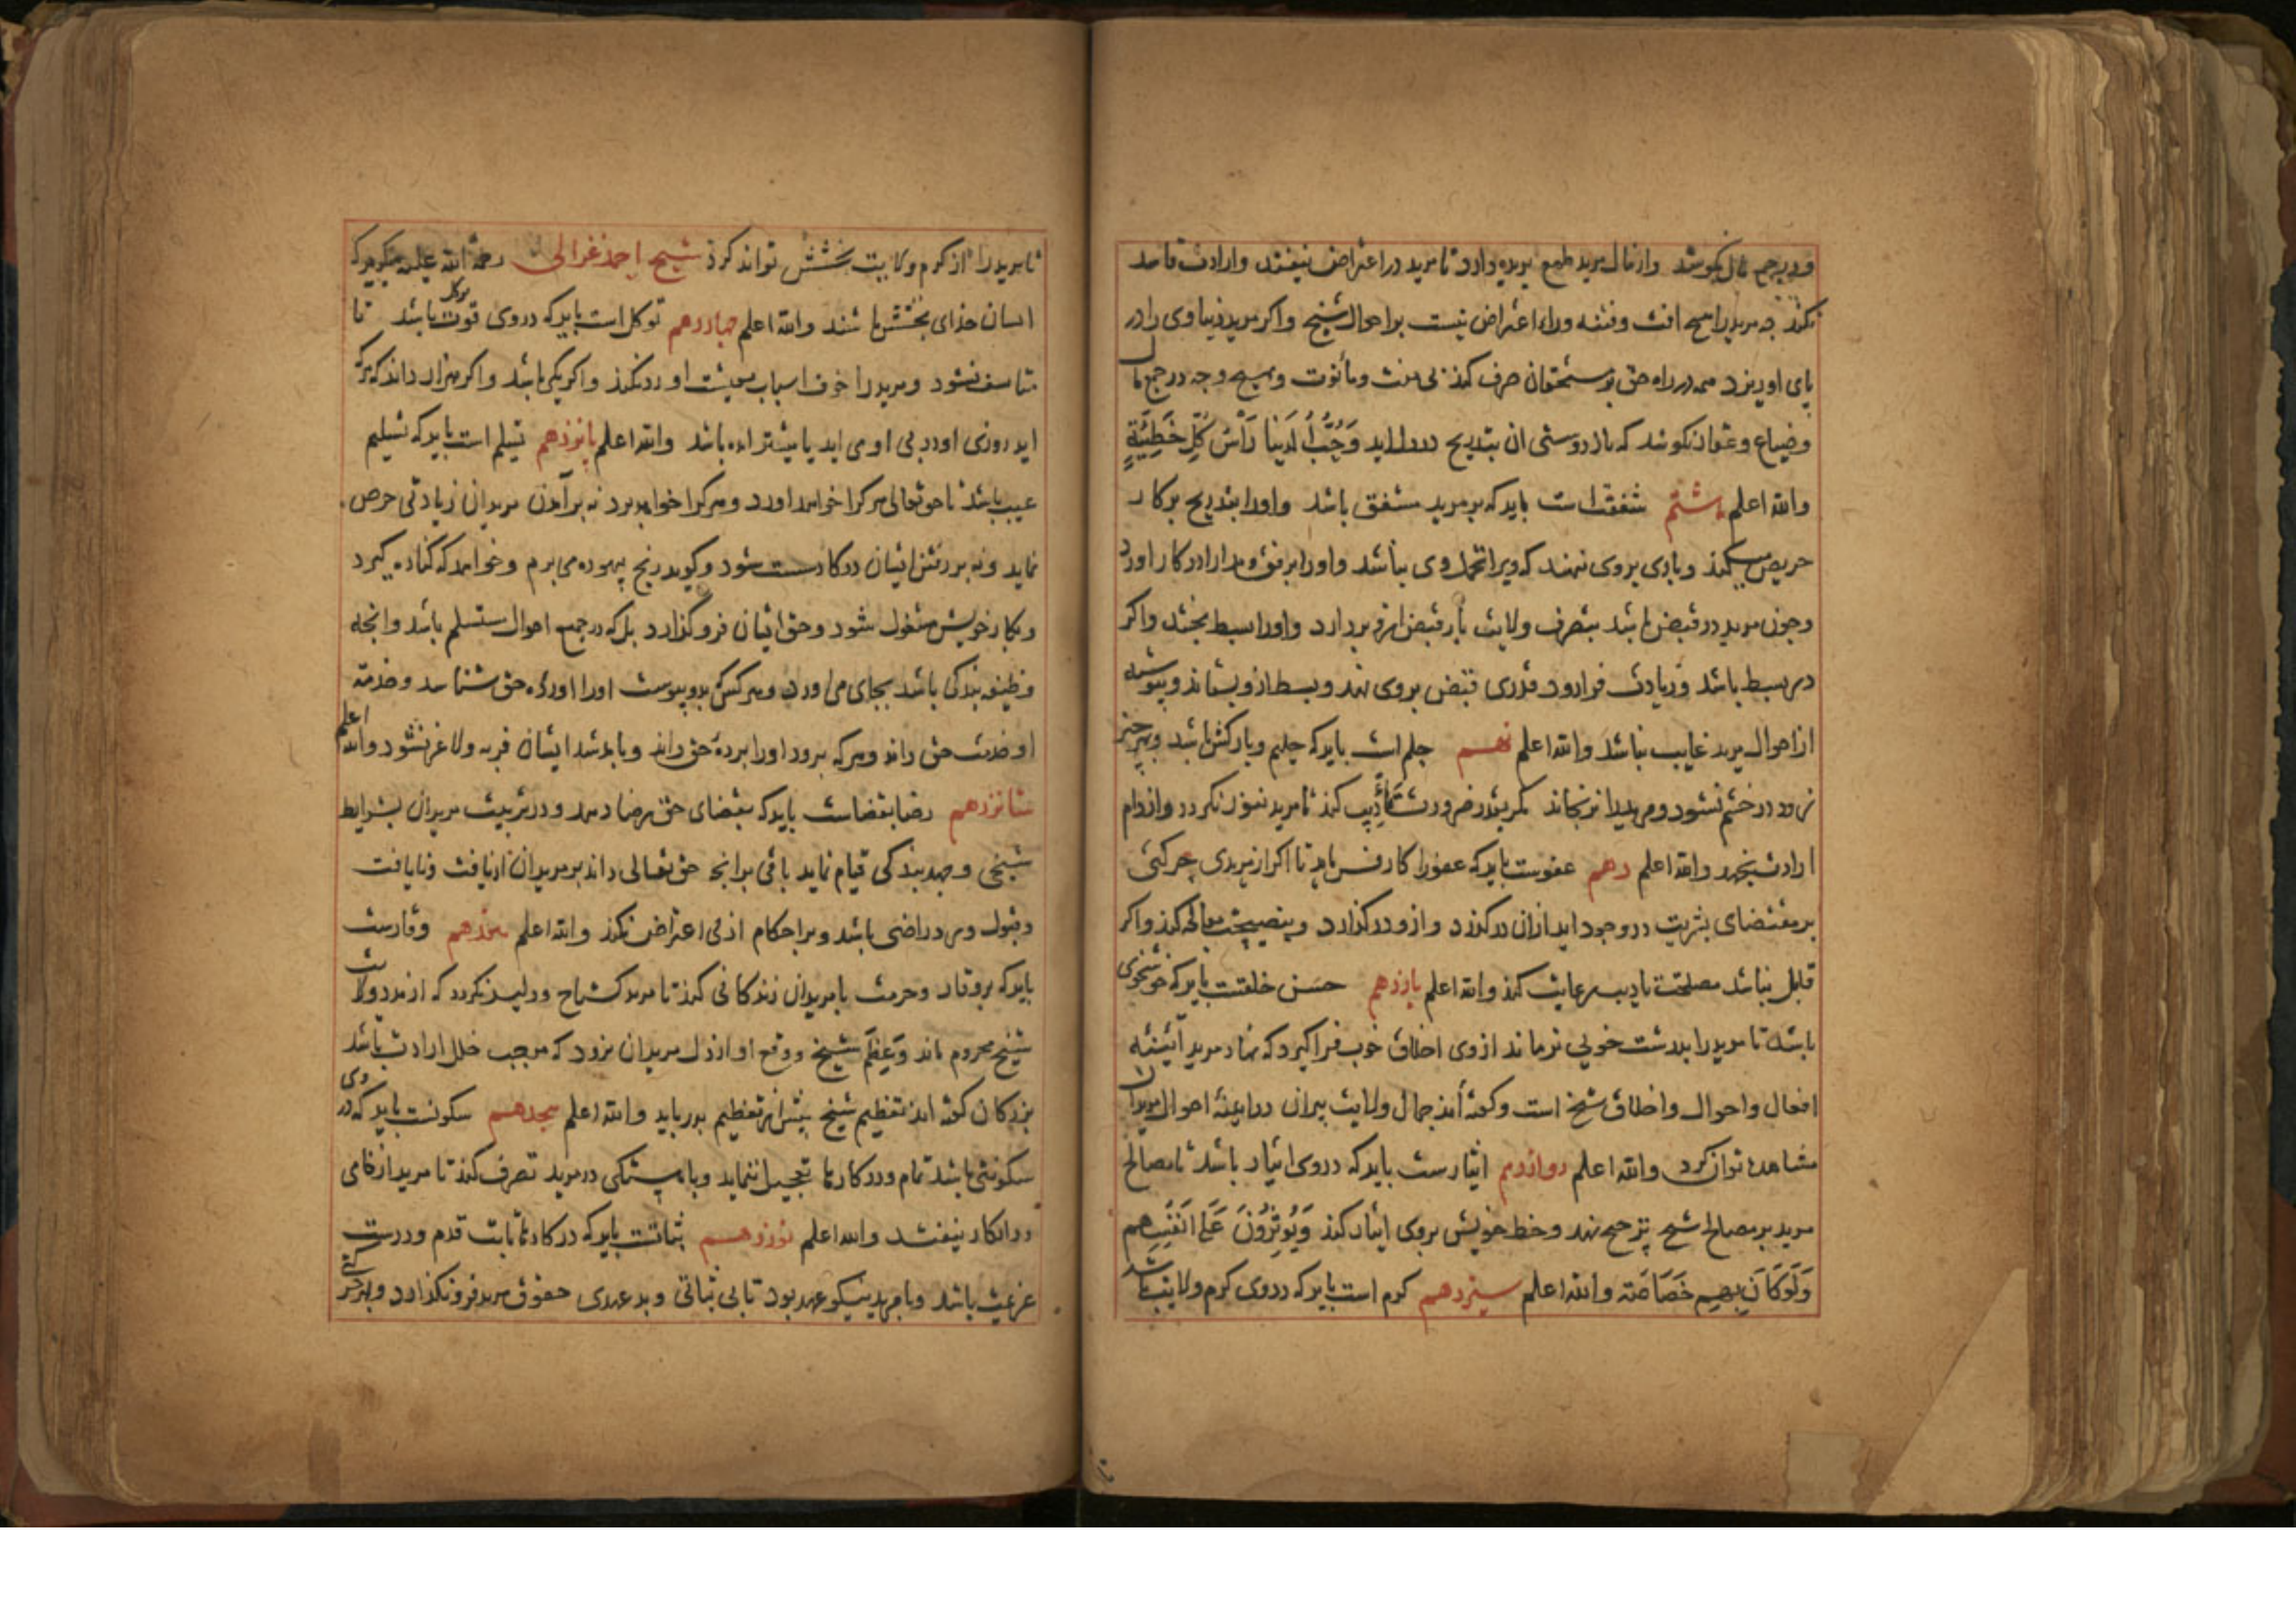 و در جمع مال نکوشد و از مال مرید طمع بریده دارد تا مرید در اعتراض نیفتد و ارادت فاسد
نکند چه مرید را هیچ افت و فتنه وراء اعتراض نیست بر احوال شیخ و اکر مرید دنیاوی را در
پای او ریزد همه در راه حق بر مستحقان صرف کند بی منت و مانوت و بهیچ وجه در جمع مال
و ضیاع و عقار نکوشد که باز دوستی ان بتدریج در دل اید وَحُبُّ الدُنیا رَأسُ کُلِّ خَطِیَئةٍ
والله اعلم هشتم شفقت است باید که بر مرید مشفق باشد و او را بتدریج بر کار
حریص میکند و باری بر وی ننهد که ویرا تحمل وی نباشد و او را برفق و مدارا در کار اورد
و جون مرید در قبض باشد بتصرف ولایت بار قبض ازو بردارد و او را بسط بخشد و اکر
در بسط باشد و زیادت فرا رود قدری قبض بر وی نهد و بسط ازو بستاند و پیوسته
از احوال مرید غایب نباشد والله اعلم نهم حلم است باید که حلیم و بارکش باشد و بهر چیز
زود در خشم نشود و مریدرا نرنجاند مکر بقدر ضرورت تأدیب کند تا مرید نفور نکردد و از دام
ارادت بجهد والله اعلم دهم عفوست باید که عفو را کار فرماید تا اکر از مریدی حرکتی
بر مقتضای بشریت در وجود اید ازان درکذرد و ازو درکذارد و بنصیحت معالجه کند و اکر
قابل نباشد مصلحت تادیب رعایت کند والله اعلم یازدهم حسن خلقست باید که خوشخوی
باشد تا مرید را بدرشت خویی نرماند از وی اخلاق خوب فرا کیرد که نهاد مرید آیینه
افعال و احوال و اخلاق شیخ است و کفته اند جمال ولایت پیران در اینه احوال مریدان
مشاهده توان کرد والله اعلم دوازدهم ایثارست باید که در وی ایثار باشد تا مصالح
مرید بر مصالح شیخ ترجیح نهد و حظ خویش بر وی ایثار کند وَیُوثِرُونَ عَلی انفُسِهم
وَلَوکَانَ بِهِم خَصَاصَة والله اعلم سیزدهم کرم است باید که در وی کرم ولایت باشد
تا مرید را از کرم ولایت بخشش تواند کرد شیخ احمد غزالی رحمة الله علیه میکوید که
انسان خدای بخشش باشند والله اعلم چهاردهم توکل است باید که در وی قوت توکل باشد تا
متاسف نشود و مرید را خوف اسباب معیشت او رد نکند و اکر یکی باشد و اکر هزار داند که هرکه
اید روزی او در پی او می اید یا پیشتر امده باشد والله اعلم پانزدهم تسلیم است باید که تسلیم
غیب باشد تا حق تعالی هرکرا خواهد اورد و هرکرا خواهد برد نه بر آمدن مریدان زیادتی حرص
نماید و نه بر رفتن ایشان در کار سست شود و کوید رنج بیهوده می برم و خواهد که کناره کیرد
و بکار خویش مشغول شود و حق ایشان فرو کذارد بل که در جمیع احوال مستسلم باشد و انجه
وظیفه بندکی باشد بجای می اورد و هر کس که بدو پیوست او را اورده حق شناسد و خدمت
او خدمت حق داند و هر که برود او را برده حق داند و بامد شد ایشان فربه و لاغر نشود والله اعلم
شانزدهم رضا بقضاست باید که بقضای حق رضا دهد و در تربیت مریدان بشرایط
شیخی و جهد بندکی قیام نماید باقی بر انجه حق تعالی داند بر مریدان از یافت و نایافت
و قبول و رد راضی باشد و بر احکام ازلی اعتراض نکند والله اعلم هفدهم وقارست
باید که بوقار و حرمت با مریدان زندکانی کند تا مرید کستاخ و دلیر نکردد که از مدد ولایت
شیخ محروم ماند وَ عِظَم شیخ و وقع او از دل مریدان برود که موجب خلل ارادت باشد
بزرکان کفته اند تعظیم شیخ بیش از تعظیم پدر باید والله اعلم هجدهم سکونست باید که در وی
سکونتی باشد تمام و در کارها تعجیل ننماید و باهستکی در مرید تصرف کند تا مرید از خامی
در انکار نیفتد والله اعلم نوزدهم ثباتست باید که در کارها ثابت قدم و درست
عزیمت باشد و با مرید نیکو عهد بود تا بی ثباتی و بد عهدی حقوق مرید فرو نکذارد و بهر حرکتی